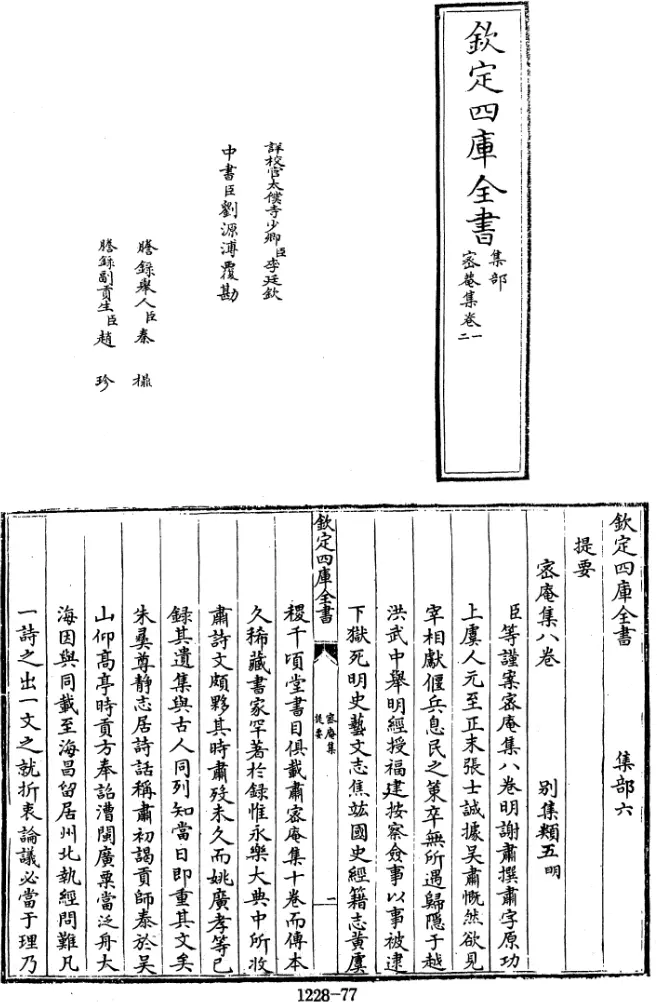 欽定四庫全書
集部
密菴集卷一
二
詳校官太僕寺少卿臣李廷欽
中書臣劉源溥覆勘
謄錄舉人臣秦
謄錄副貢生臣趙珍
欽定四庫全書 集部六
提要
密庵集八卷 別集類五明
臣等謹案密庵集八卷明謝肅撰肅字原功
上虞人元至正末張士誠據吳肅慨然欲見
宰相獻偃兵息民之策卒無所遇歸隱于越
洪武中舉明經授福建按察僉事以事被逮
下獄死明史藝文志焦竑國史經籍志黃虞
欽定四庫全書
密庵集
提要
一
稷千頃堂書目俱載肅密庵集十卷而傳本
久稀藏書家罕著於錄惟永樂大典中所收
肅詩文頗夥其時肅歿未久而姚廣孝等已
録其遺集與古人同列知當日即重其文矣
朱彝尊靜志居詩話稱肅初謁貢師泰於吳
山仰高亭時貢方奉詔漕閩廣粟當泛舟大
海因與同載至海昌留居州北執經問難凡
一詩之出一文之就折衷論議必當于理乃
1228-77